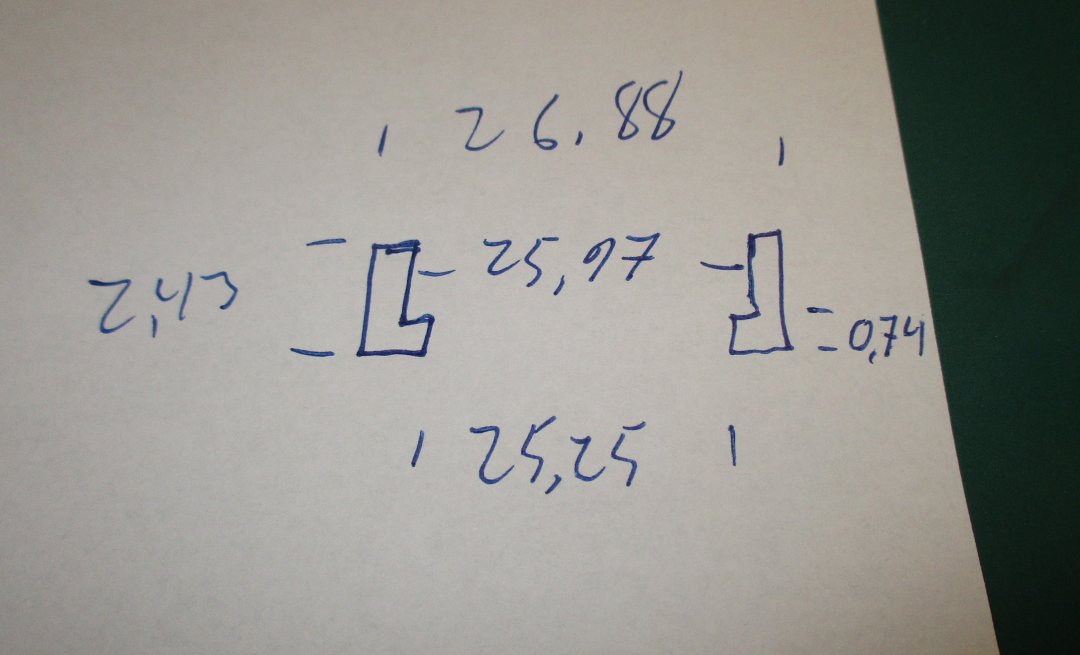 26.88
25,97
2,43
0,74
25,25